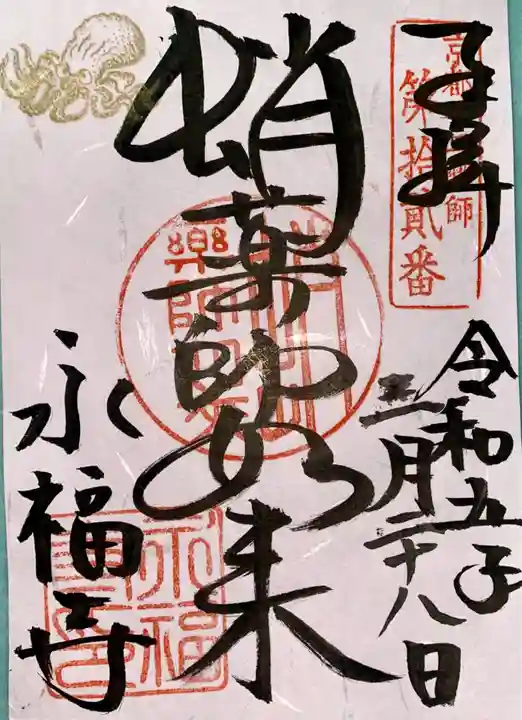 奉拝
京都
師
第拾貳番
令和五年
三月二十八日
蛸薬師如来
永福寺